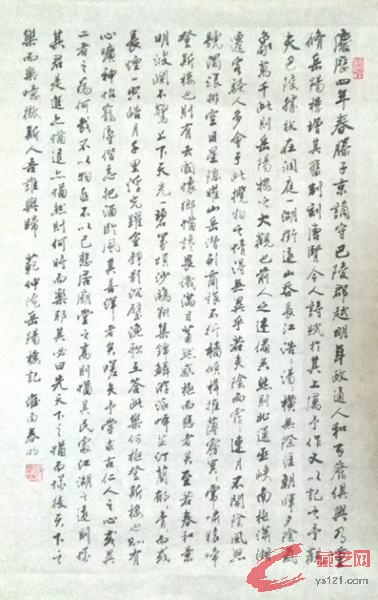 慶歷四年春滕子京謫守巴陵郡越明年政通人和百廢俱興乃重
脩岳陽樓增其舊制刻唐賢今人詩賦於其上屬予作文以記之予觀
夫巴陵勝狀在洞庭一湖銜遠山吞長江浩浩湯湯橫無際涯朝暉夕陰氣
象萬千此則岳陽樓之大觀也前人之述備矣然則北通巫峽南極瀟湘
遷客騷人多會于此攬物之情得無異乎若夫陰雨霏霏連月不開陰風怒
號濁浪排空日星隱耀山岳潛形商旅不行檣傾楫摧薄暮冥冥虎嘯猿啼
登斯樓也則有去國懷鄉憂讒畏譏滿目蕭然感極而悲者矣至若春和景
明波瀾不驚上下天光一碧萬頃沙鷗翔集錦鱗游泳岸芷汀蘭郁郁青青而或
長煙一空皓月千里浮光躍金靜影沉璧漁歌互答此樂何極登斯樓也則有
心曠神怡寵辱偕忘把酒臨風其喜洋洋者矣嗟夫予嘗求古仁人之心或異
二者之為何哉不以物喜不以己悲居廟堂之高則憂其民處江湖之遠則憂
其君是進亦憂退亦憂然則何時而樂耶其必曰先天下之憂而憂後天下之
樂而樂噫微斯人吾誰與歸 范仲淹岳陽樓記
藏艺网
ys121.com